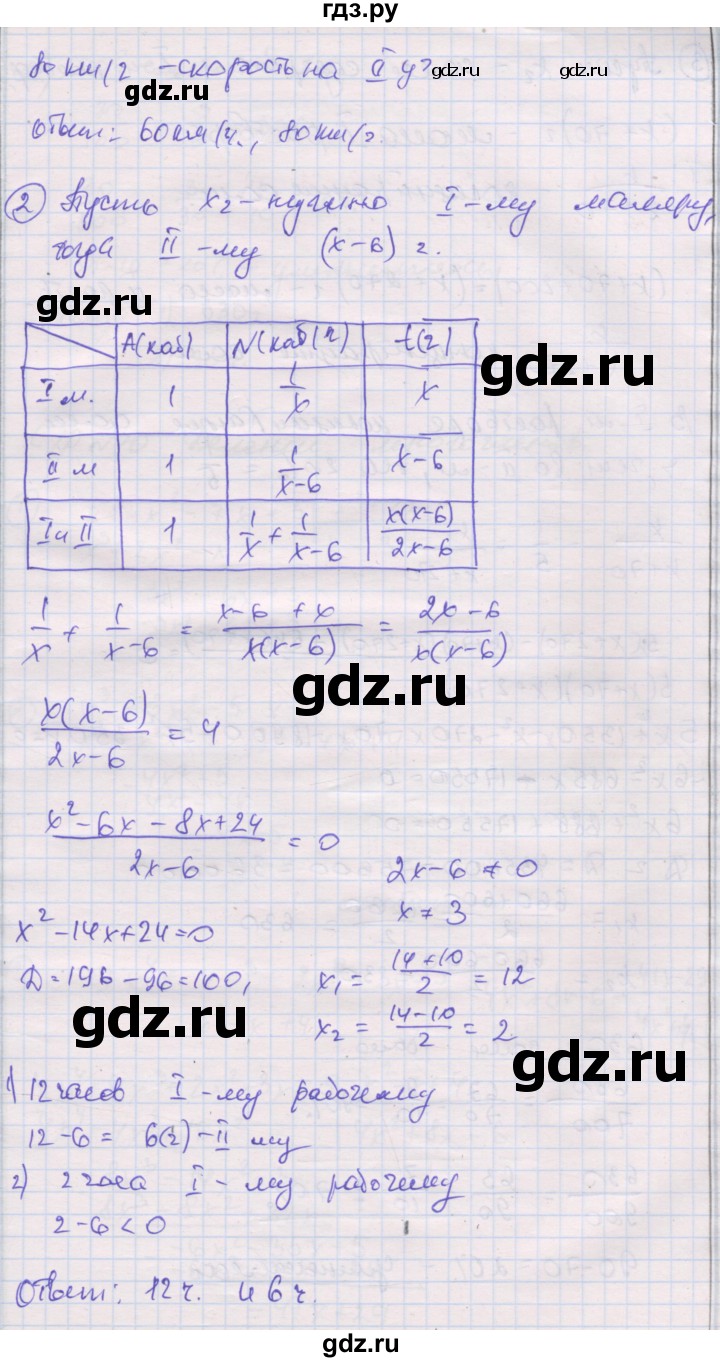 гдз.ру
80 км/ч - скорость на II у?
gdz.ru
gdz.ru
Ответ: 60 км/ч., 80 км/ч
② Пусть x ч - нужно I-му маляру,
тогда II-му (x-6) ч.
gdz.ru
A(каб) N(каб/ч) t(ч)
gdz.ru
I м. 1 1/x x
II м 1 1/(x-6) x-6
I и II 1 1/x + 1/(x-6) x(x-6)/(2x-6)
1/x + 1/(x-6) = (x-6+x)/(x(x-6)) = (2x-6)/(x(x-6))
gdz.ru
x(x-6)/(2x-6) = 4
(x²-6x-8x+24)/(2x-6) = 0
2x-6 ≠ 0
x ≠ 3
x²-14x+24=0
D=196-96=100,
x₁ = (14+10)/2 = 12
x₂ = (14-10)/2 = 2
gdz.ru
gdz.ru
1) 12 часов I-му рабочему
12-6 = 6(ч)-II му
2) 2 часа I-му рабочему
2-6<0
Ответ: 12 ч. и 6 ч.
gdz.ru
gdz.ru